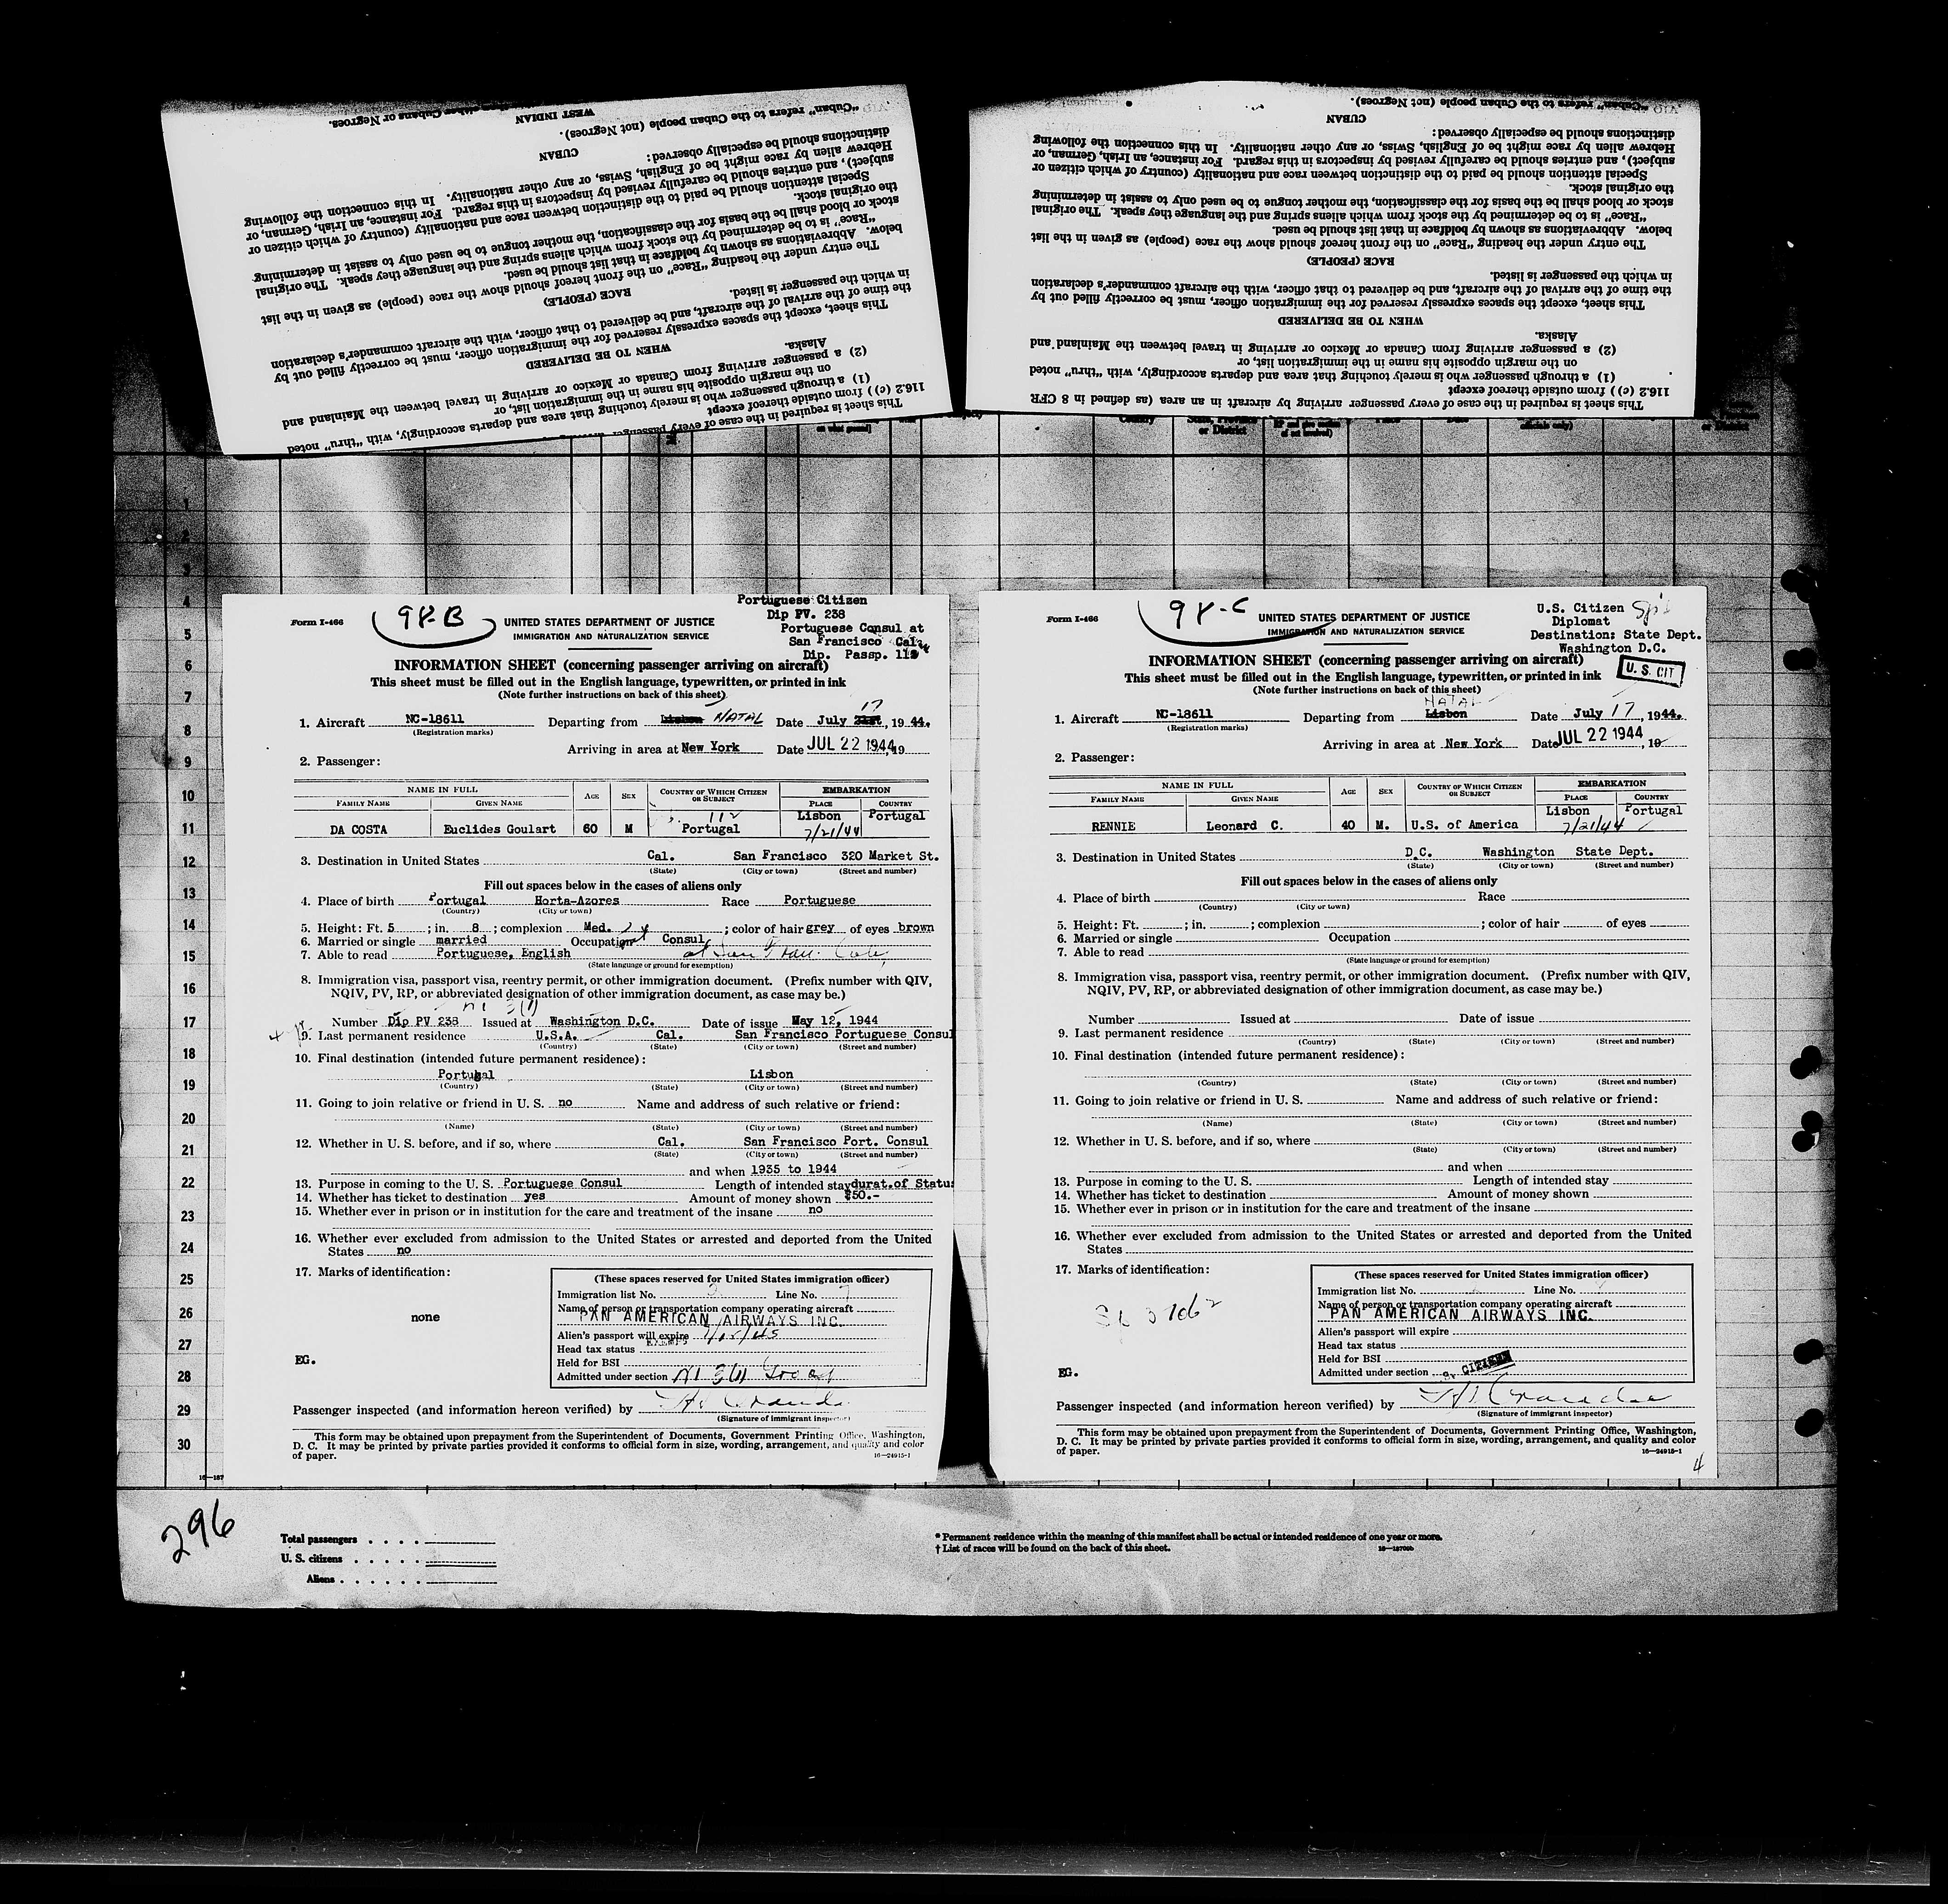 "Cuban" refers to the Cuban people (not Negroes).
CUBAN
distinctions should be especially observed:
Hebrew alien by race might be of English, Swiss, or any other nationality. In this connection the following
subject), and entries should be carefully revised by inspectors in this regard. For instance, an Irish, German, or
Special attention should be paid to the distinction between race and nationality (country of which citizen or
the original stock.
stock or blood shall be the basis for the classification, the mother tongue to be used only to assist in determining
"Race" is to be determined by the stock from which aliens spring and the language they speak. The original
below. Abbreviations as shown by boldface in that list should be used.
The entry under the heading "Race" on the front hereof should show the race (people) as given in the list
RACE (PEOPLE)
in which the passenger is listed.
the time of the arrival of the aircraft, and be delivered to that officer, with the aircraft commander's declaration
This sheet, except the spaces expressly reserved for the immigration officer, must be correctly filled out by
WHEN TO BE DELIVERED
Alaska.
(2) a passenger arriving from Canada or Mexico or arriving in travel between the Mainland and
on the margin opposite his name in the immigration list, or
(1) a through passenger who is merely touching that area and departs accordingly, with "thru" noted
116.2 (c)) from outside thereof except
This sheet is required in the case of every passenger
WEST INDIAN
"Cuban" refers to the Cuban people (not Negroes).
CUBAN
distinctions should be especially observed:
Hebrew alien by race might be of English, Swiss, or any other nationality. In this connection the following
subject), and entries should be carefully revised by inspectors in this regard. For instance, an Irish, German, or
Special attention should be paid to the distinction between race and nationality (country of which citizen or
the original stock.
stock or blood shall be the basis for the classification, the mother tongue to be used only to assist in determining
"Race" is to be determined by the stock from which aliens spring and the language they speak. The original
below. Abbreviations as shown by boldface in that list should be used.
The entry under the heading "Race" on the front hereof should show the race (people) as given in the list
RACE (PEOPLE)
in which the passenger is listed.
the time of the arrival of the aircraft, and be delivered to that officer, with the aircraft commander's declaration
This sheet, except the spaces expressly reserved for the immigration officer, must be correctly filled out by
WHEN TO BE DELIVERED
Alaska.
(2) a passenger arriving from Canada or Mexico or arriving in travel between the Mainland and
on the margin opposite his name in the immigration list, or
(1) a through passenger who is merely touching that area and departs accordingly, with "thru" noted
116.2 (c)) from outside thereof except
This sheet is required in the case of every passenger arriving by aircraft in an area (as defined in 8 CFR
Form I-466
98-B
UNITED STATES DEPARTMENT OF JUSTICE
IMMIGRATION AND NATURALIZATION SERVICE
Portuguese Citizen
Dip PV. 238
Portuguese Consul at
San Francisco Cal.
Dip. Passp. 112
INFORMATION SHEET (concerning passenger arriving on aircraft)
This sheet must be filled out in the English language, typewritten, or printed in ink
(Note further instructions on back of this sheet)
1. Aircraft NC-18611 Departing from Lisbon NATAL Date July 17, 1944.
(Registration marks)
Arriving in area at New York Date JUL 22 1944, 19
2. Passenger:
NAME IN FULL AGE SEX COUNTRY OF WHICH CITIZEN OR SUBJECT EMBARKATION
FAMILY NAME GIVEN NAME PLACE COUNTRY
112 Lisbon Portugal
DA COSTA Euclides Goulart 60 M Portugal 7/21/44
3. Destination in United States Cal. San Francisco 320 Market St.
(State) (City or town) (Street and number)
Fill out spaces below in the cases of aliens only
4. Place of birth Portugal Horta-Azores Race Portuguese
(Country) (City or town)
5. Height: Ft. 5 ; in. 8 ; complexion Med. ; color of hair grey of eyes brown
6. Married or single married Occupation Consul
7. Able to read Portuguese, English at San Fran. Cal.
(State language or ground for exemption)
8. Immigration visa, passport visa, reentry permit, or other immigration document. (Prefix number with QIV,
NQIV, PV, RP, or abbreviated designation of other immigration document, as case may be.)
3(1)
Number Dip PV 238 Issued at Washington D.C. Date of issue May 12, 1944
9. Last permanent residence U.S.A. Cal. San Francisco Portuguese Consul
(Country) (State) (City or town) (Street and number)
10. Final destination (intended future permanent residence):
Portugal Lisbon
(Country) (State) (City or town) (Street and number)
11. Going to join relative or friend in U. S. no Name and address of such relative or friend:
(Name) (State) (City or town) (Street and number)
12. Whether in U. S. before, and if so, where Cal. San Francisco Port. Consul
(State) (City or town) (Street and number)
and when 1935 to 1944
13. Purpose in coming to the U. S. Portuguese Consul Length of intended stay durat.of Status
14. Whether has ticket to destination yes Amount of money shown $50.-
15. Whether ever in prison or in institution for the care and treatment of the insane no
16. Whether ever excluded from admission to the United States or arrested and deported from the United
States no
17. Marks of identification:
none
EG.
(These spaces reserved for United States immigration officer)
Immigration list No. Line No.
Name of person or transportation company operating aircraft
PAN AMERICAN AIRWAYS INC.
Alien's passport will expire
Head tax status
Held for BSI
Admitted under section
Passenger inspected (and information hereon verified) by
(Signature of immigrant inspector)
This form may be obtained upon prepayment from the Superintendent of Documents, Government Printing Office, Washington,
D. C. It may be printed by private parties provided it conforms to official form in size, wording, arrangement, and quality and color
of paper. 16—24915-1
Form I-466
98-C
UNITED STATES DEPARTMENT OF JUSTICE
IMMIGRATION AND NATURALIZATION SERVICE
U.S. Citizen
Diplomat
Destination: State Dept.
Washington D.C.
U. S. CIT
INFORMATION SHEET (concerning passenger arriving on aircraft)
This sheet must be filled out in the English language, typewritten, or printed in ink
(Note further instructions on back of this sheet)
NATAL
1. Aircraft NC-18611 Departing from Lisbon Date July 17, 1944.
(Registration marks)
Arriving in area at New York Date JUL 22 1944, 19
2. Passenger:
NAME IN FULL AGE SEX COUNTRY OF WHICH CITIZEN OR SUBJECT EMBARKATION
FAMILY NAME GIVEN NAME PLACE COUNTRY
Lisbon Portugal
RENNIE Leonard C. 40 M. U.S. of America 7/21/44
3. Destination in United States D.C. Washington State Dept.
(State) (City or town) (Street and number)
Fill out spaces below in the cases of aliens only
4. Place of birth Race
(Country) (City or town)
5. Height: Ft. ; in. ; complexion ; color of hair of eyes
6. Married or single Occupation
7. Able to read
(State language or ground for exemption)
8. Immigration visa, passport visa, reentry permit, or other immigration document. (Prefix number with QIV,
NQIV, PV, RP, or abbreviated designation of other immigration document, as case may be.)
Number Issued at Date of issue
9. Last permanent residence
(Country) (State) (City or town) (Street and number)
10. Final destination (intended future permanent residence):
(Country) (State) (City or town) (Street and number)
11. Going to join relative or friend in U. S. Name and address of such relative or friend:
(Name) (State) (City or town) (Street and number)
12. Whether in U. S. before, and if so, where
(State) (City or town) (Street and number)
and when
13. Purpose in coming to the U. S. Length of intended stay
14. Whether has ticket to destination Amount of money shown
15. Whether ever in prison or in institution for the care and treatment of the insane
16. Whether ever excluded from admission to the United States or arrested and deported from the United
States
17. Marks of identification:
EG.
(These spaces reserved for United States immigration officer)
Immigration list No. Line No.
Name of person or transportation company operating aircraft
PAN AMERICAN AIRWAYS INC.
Alien's passport will expire
Head tax status
Held for BSI
Admitted under section CITIZEN
Passenger inspected (and information hereon verified) by
(Signature of immigrant inspector)
This form may be obtained upon prepayment from the Superintendent of Documents, Government Printing Office, Washington,
D. C. It may be printed by private parties provided it conforms to official form in size, wording, arrangement, and quality and color
of paper. 16—24915-1
4
1
2
3
4
5
6
7
8
9
10
11
12
13
14
15
16
17
18
19
20
21
22
23
24
25
26
27
28
29
30
16—187
296
Total passengers
U. S. citizens
Aliens
* Permanent residence within the meaning of this manifest shall be actual or intended residence of one year or more.
† List of races will be found on the back of this sheet.